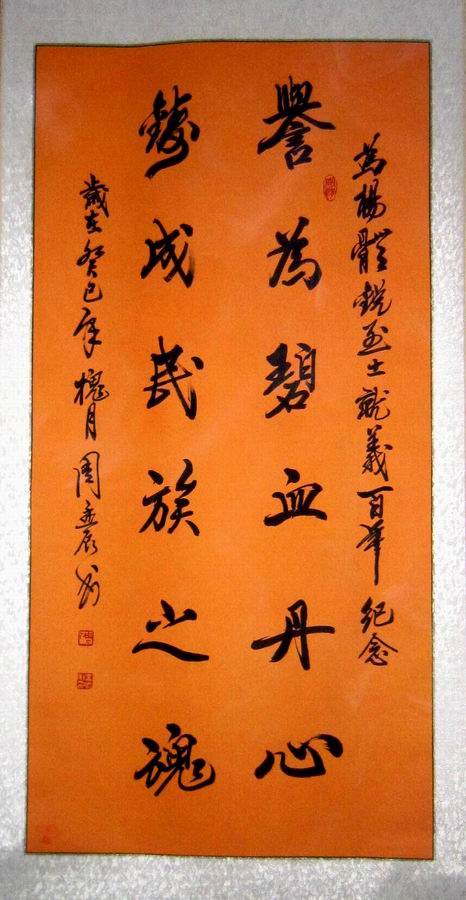 為楊體銳烈士就義百年紀念
譽為碧血丹心
鑄成民族之魂
歲在癸巳年槐月周